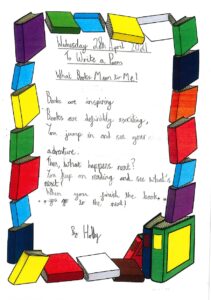 Wednesday 28th April 2021
To Write a Poem
What Books Mean to Me!
Books are inspiring
Books are definitely exciting,
You jump in and see your
adventure.
Then, what happens next?
You keep on reading and see what's
next!
When you finish the book...
... you go to the next!
By Holly